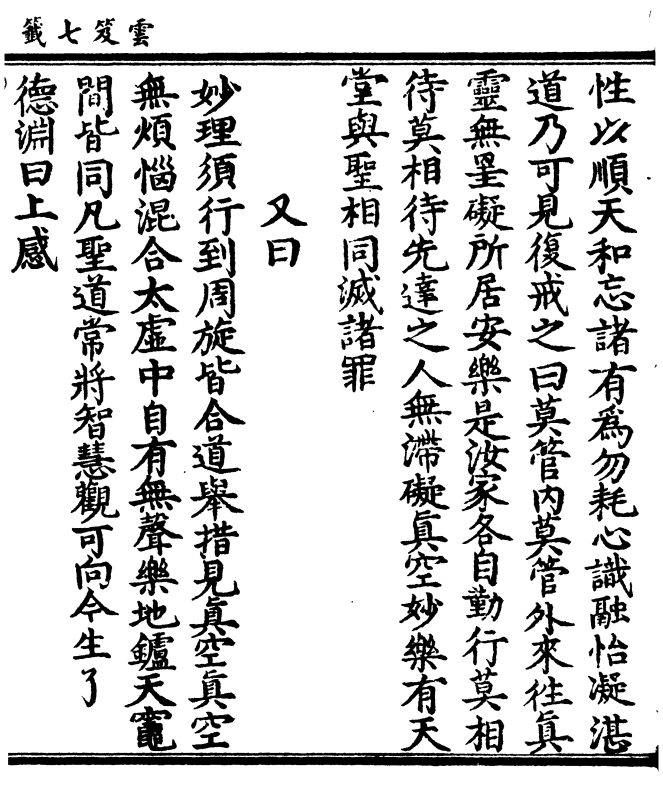 雲笈七籤
性以順天和忘諸有爲勿耗心識融怡凝湛
道乃可見復戒之曰莫管內莫管外來往眞
靈無罣礙所居安樂是汝家各自勤行莫相
待莫相待先達之人無滯礙眞空妙樂有天
堂與聖相同滅諸罪
又曰
妙理須行到周旋皆合道舉措見眞空眞空
無煩惱混合太虛中自有無聲樂地鑪天竈
間皆同凡聖道常將智慧觀可向今生了
德淵曰上感